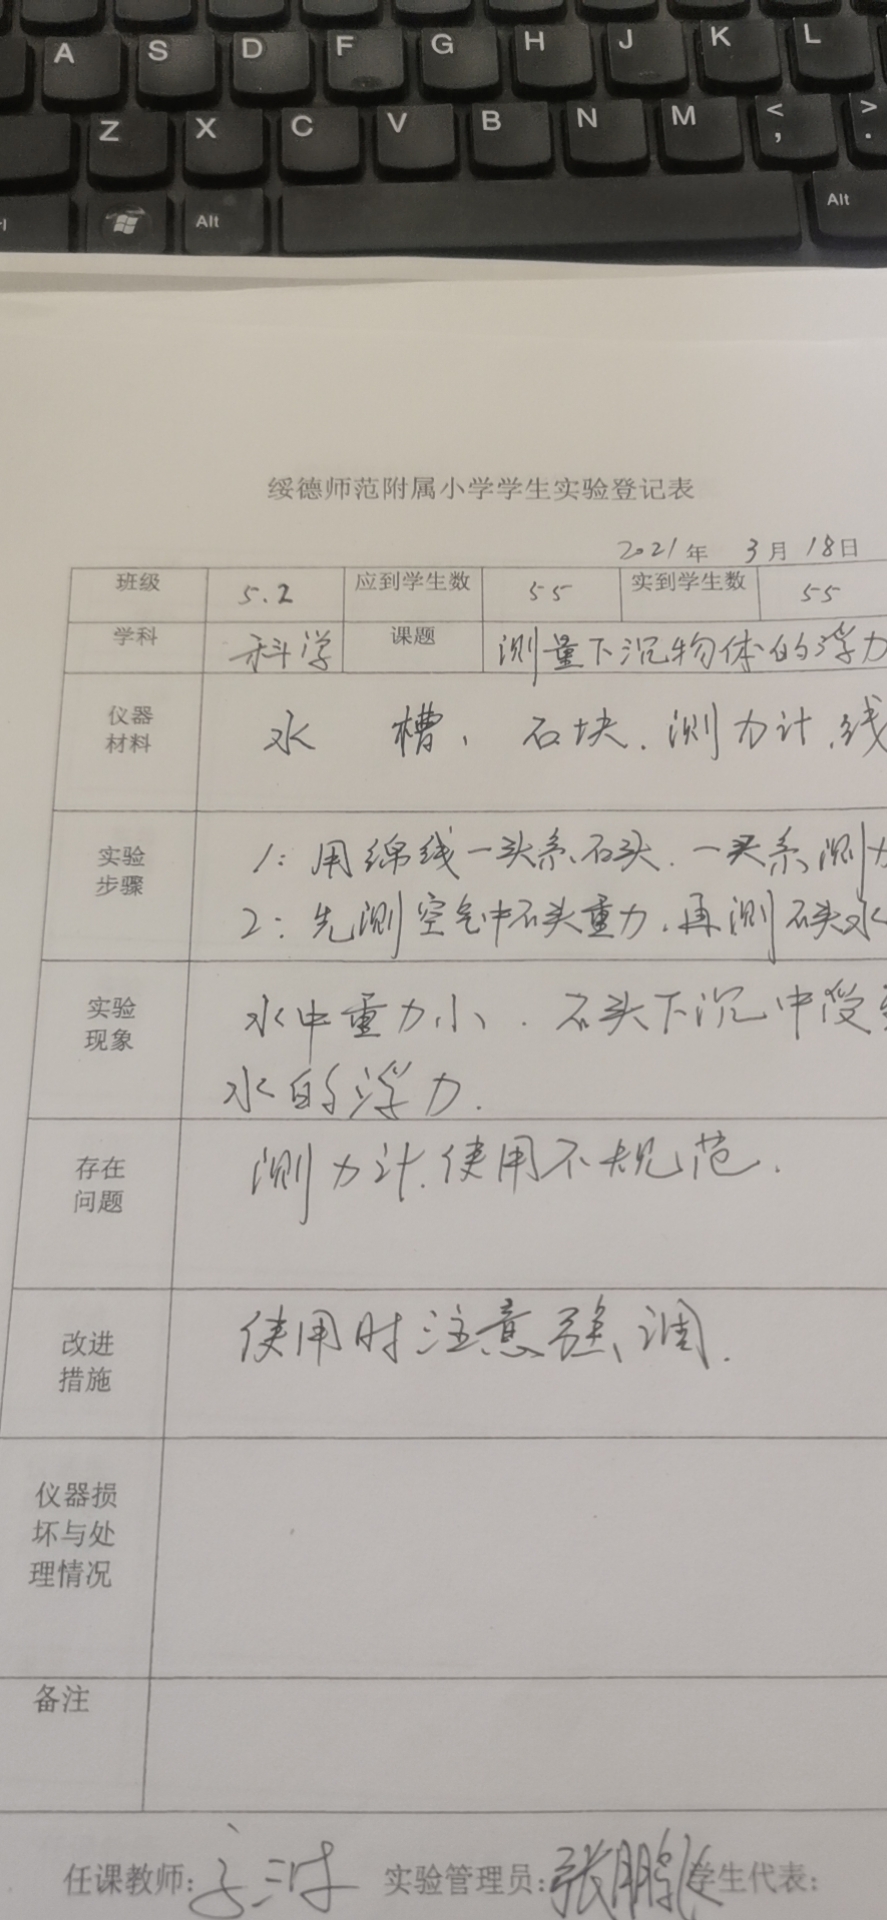 A S D F G H J K L
Z X C V B N M < , > .
Alt Alt
绥德师范附属小学学生实验登记表
2021年 3月18日
班级 5.2 应到学生数 55 实到学生数 55
学科 科学 课题 测量下沉物体的浮力
仪器材料 水 槽、石块.测力计.线
实验步骤 1:用绵线一头系石头.一头系测力
2:先测空气中石头重力.再测石头水
实验现象 水中重力小.石头下沉中受到
水的浮力.
存在问题 测力计.使用不规范.
改进措施 使用时注意强调.
仪器损坏与处理情况
备注
任课教师: 实验管理员:张鹏 学生代表: